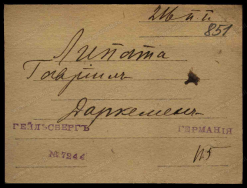 851
Липата
Гавриил
Даркемен
ГЕЙЛЬСБЕРГЪ ГЕРМАНІЯ
№ 7244